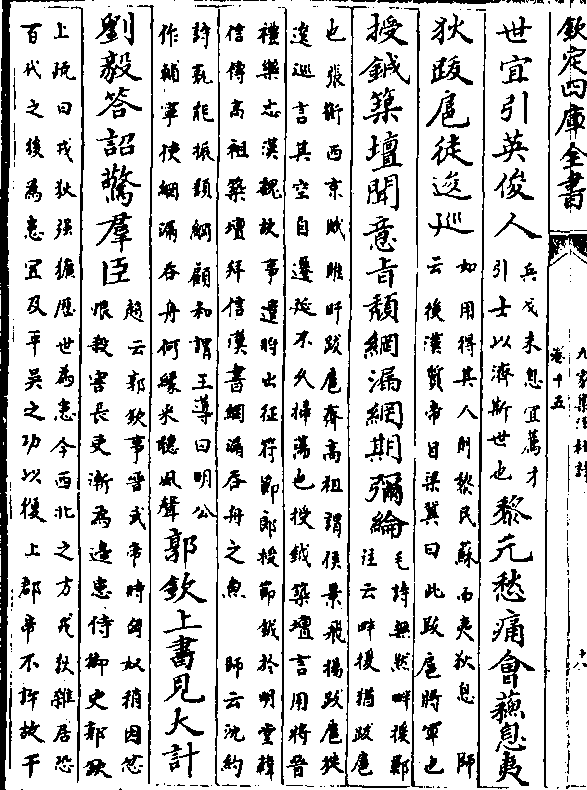 欽定四庫全書
九家集注杜詩
卷十五
世宜引英俊人兵戈未息宜薦才引士以濟斯世也黎元愁痛會蘇息夷
狄跋扈徒逡巡如用得其人則黎民蘇而夷狄息 師云後漢質帝目梁冀曰此跋扈將軍也
授鉞築壇聞意旨頹綱漏網期彌綸毛詩無然畔援鄭注云畔援猶跋扈
也張衡西京賦睢盱跋扈齊高祖謂侯景飛揚跋扈狹
逡巡言其空自遷延不久掃蕩也授鉞築壇言用將晉
禮樂志漢魏故事遣將出征符節郎授節鉞於明堂韓
信傳高祖築壇拜信漢書網漏吞舟之魚 師云沈約
許孰能振頹綱顧和謂王導曰明公作輔寧使網漏吞舟何緣采聽風聲郭欽上書見大計
劉毅答詔驚羣臣趙云郭欽事晉武帝時匈奴稍因忿恨殺害長吏漸為邊患侍御史郭欽
上疏曰戎狄强獷歷世為患今西北之方戎狄雜居恐
百代之後為患宜及平吳之功以復上郡帝不許故干